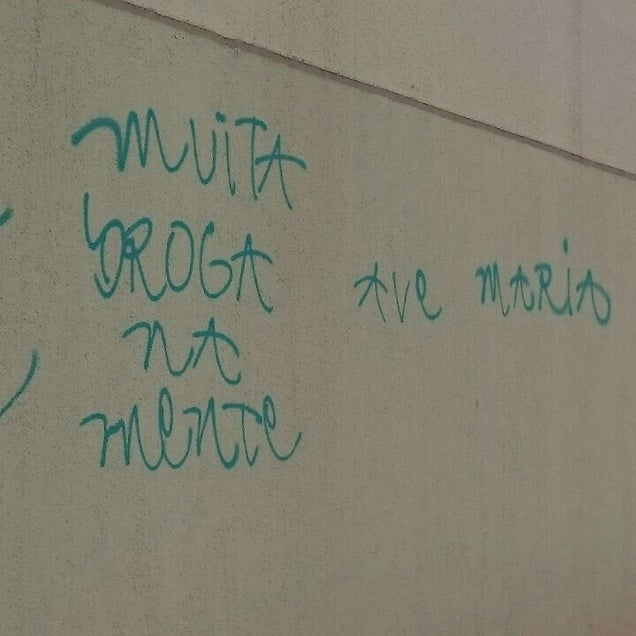 MUiTA
DROGA
NA
MeNTe
AVe MARiA